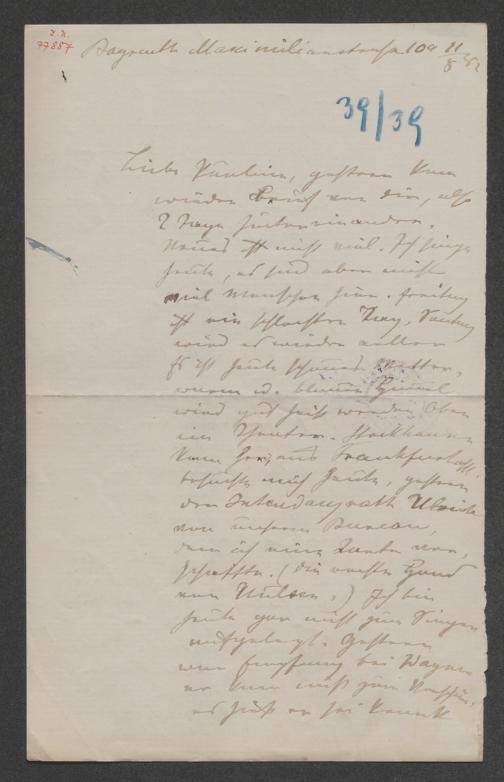 z. N.
77887
Bayreuth Maximilianstrasse 109 11/8 82
39/39
Liebe Pauline, gestern kam
wieder Brief von dir, also
2 Tage hintereinander.
Neues ist nicht viel. Ich singe
heute, es sind aber nicht
viel Menschen hier. Freitag
ist ein schlechter Tag, Sontag
wird es wieder voller
Es ist heute schönes Wetter,
warm u. blauer Himmel
wird gut heiss werden oben
im Theater. Stockhausen
kam hier, aus Frankfurt a/M
besuchte mich heute, gestern
der Intendanzrath Ulrich
von unserm Bureau,
dem ich eine Karte ver-
schaffte. (Die rechte Hand
von Hülsen.) Ich bin
heute gar nicht zum Singen
aufgelegt. Gestern
war Empfang bei Wagner
er kam nicht zum Vorschein,
es hiess er sei krank